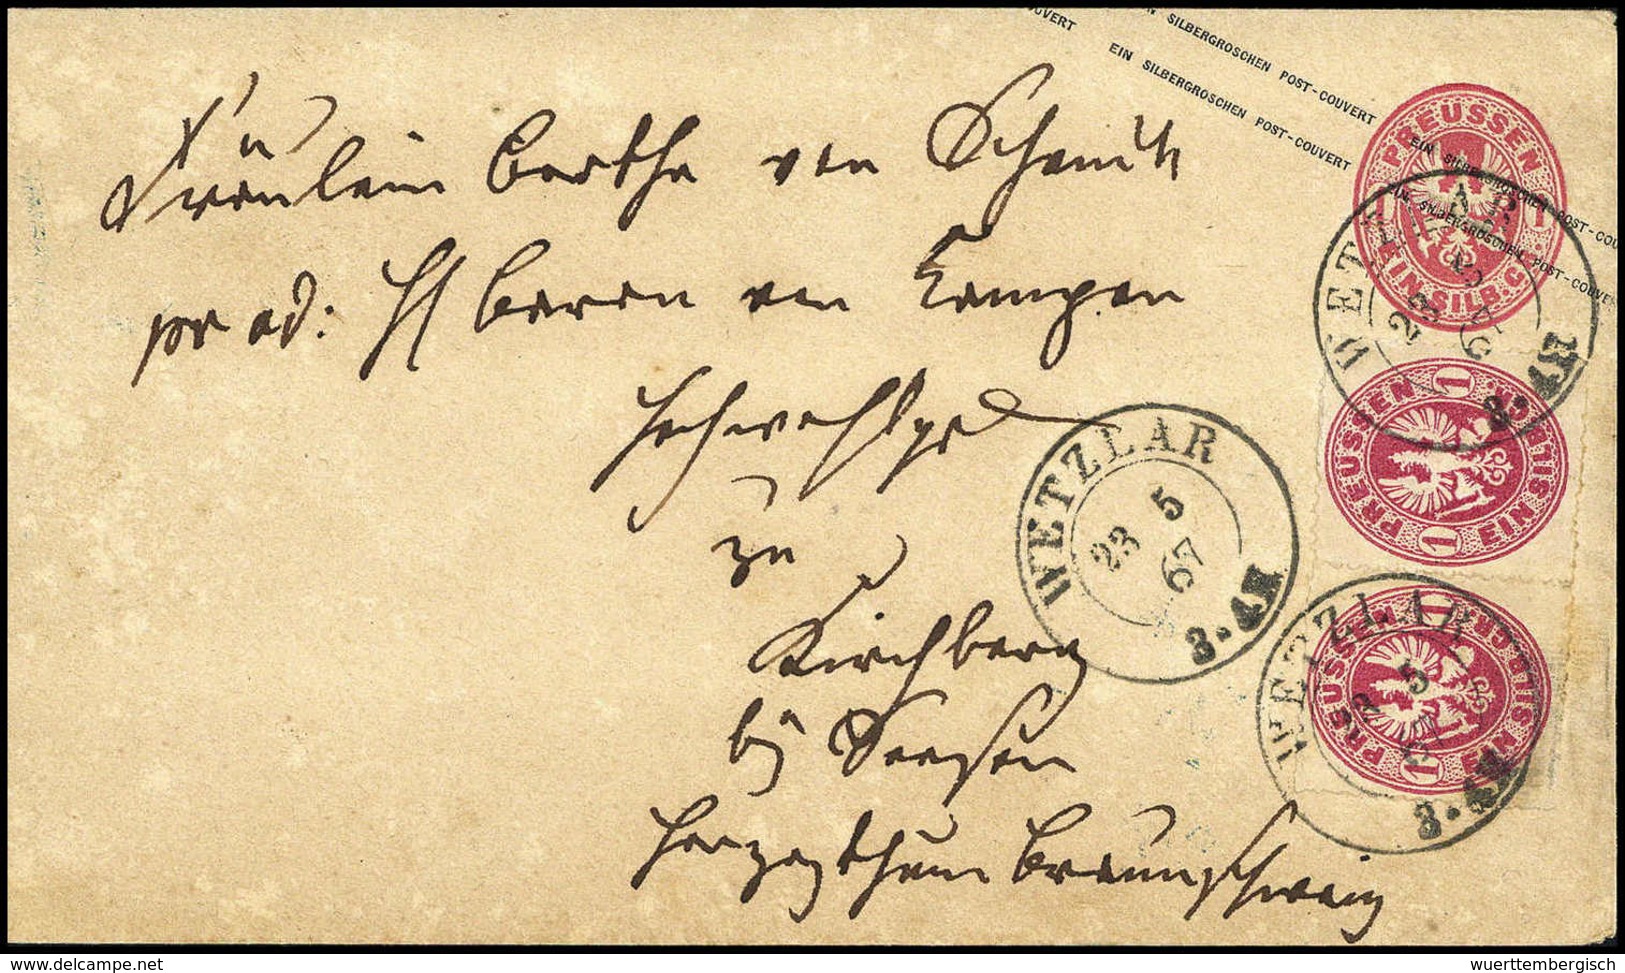 EIN SILBERGROSCHEN POST-COUVERT
EIN SILBERGROSCHEN POST-COUVERT
EIN SILBERGROSCHEN POST-COUVERT
EIN SILBERGROSCHEN POST-COUVERT
PREUSSEN
1 1
EIN SILB. GR.
WETZLAR
23 5
67
3-4N
Fräulein Bertha von
pr ad: H Baron von Campen
Hochwohlgb
zu
Kirchberg
bij Seesen
Herzogthum Braunschweig
WETZLAR
23 5
67
3-4N
PREUSSEN 1 EIN SILB. GR. 1
PREUSSEN 1 EIN SILB. GR. 1
WETZLAR
23 5
67
3-4N
delcampe.net
wuerttembergisch